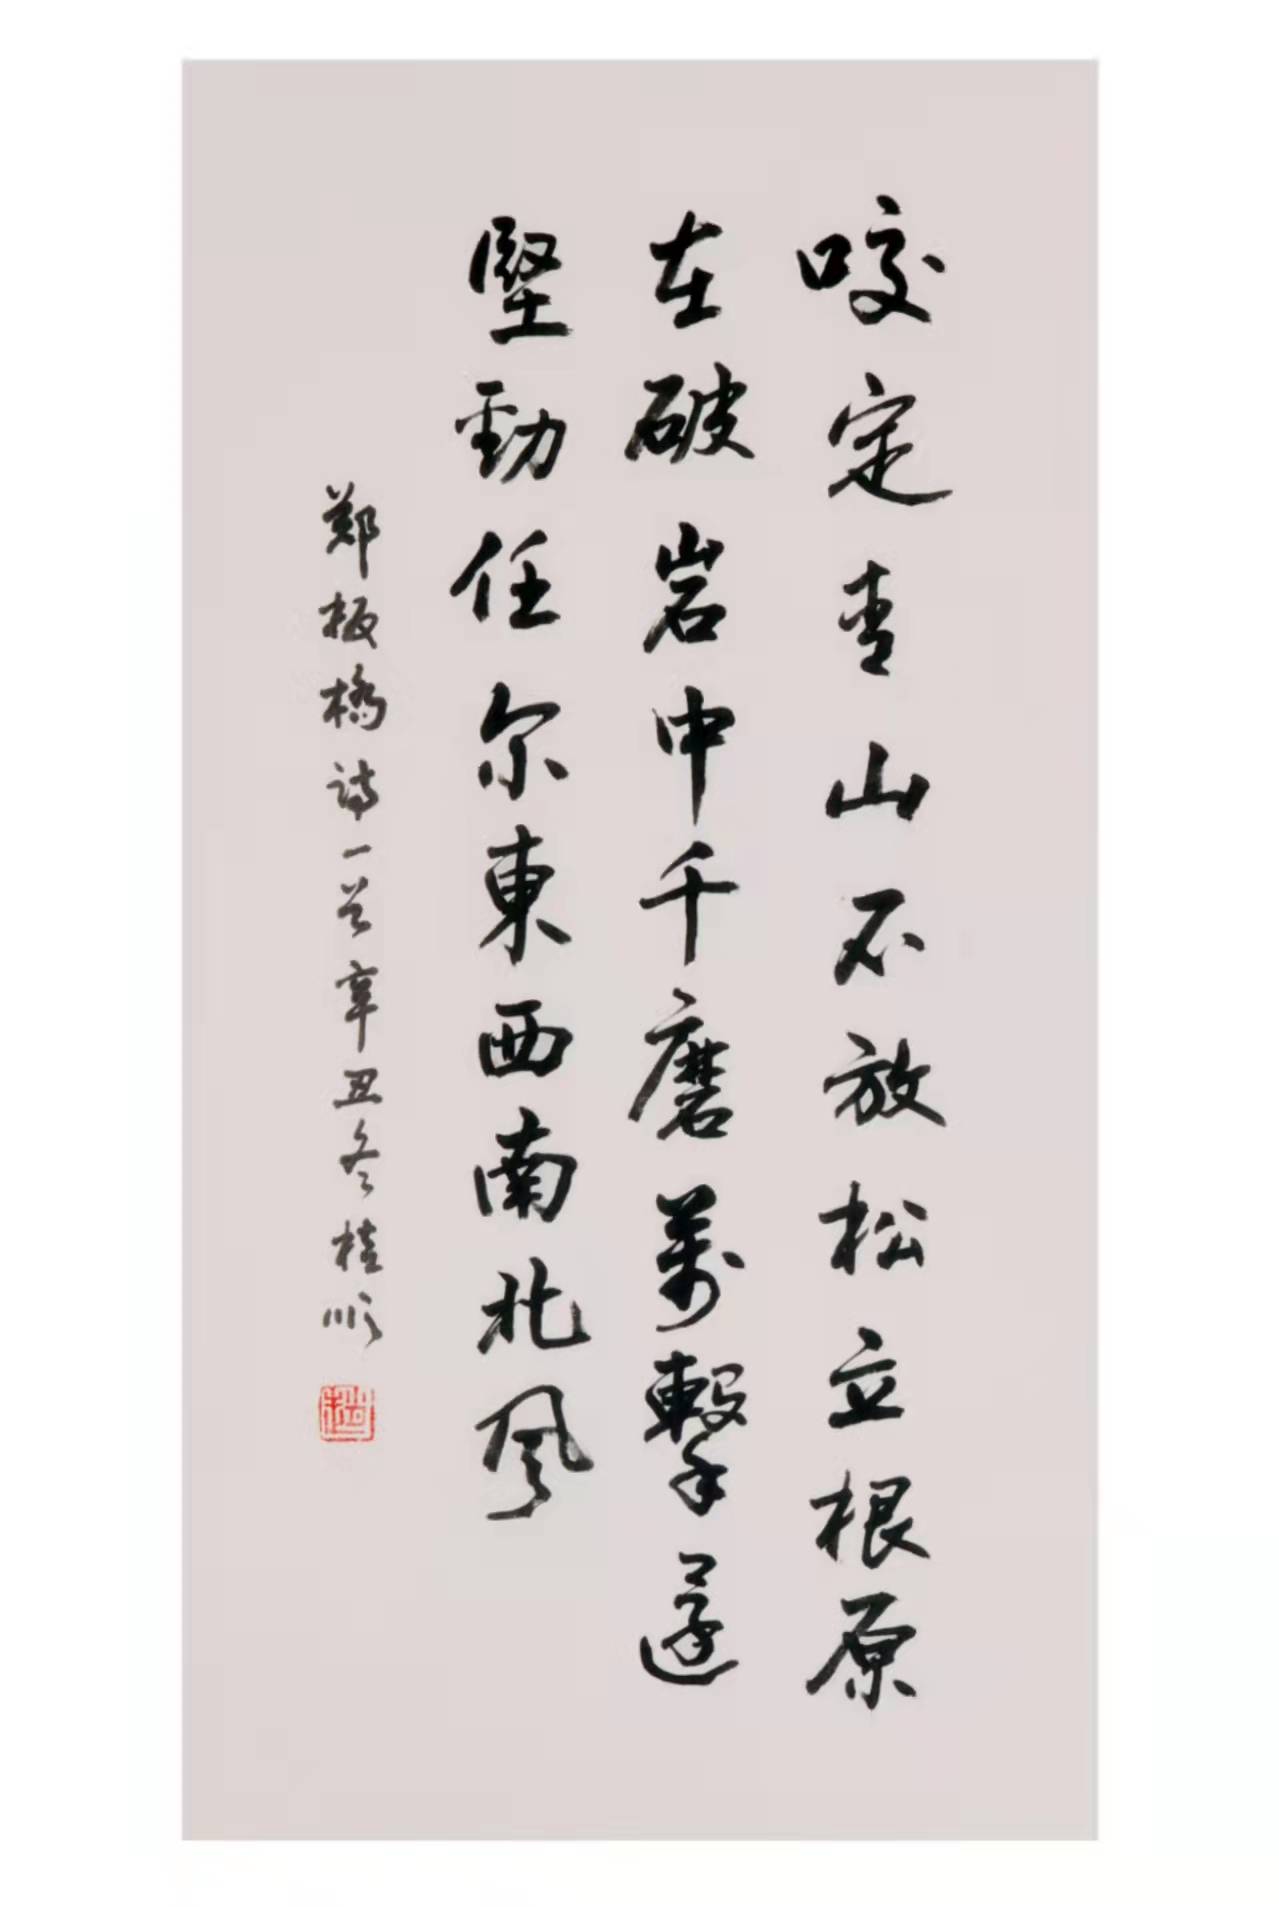 咬定青山不放松立根原
在破岩中千磨萬擊還
堅勁任尔東西南北風
鄭板橋詩一首辛丑冬桂順